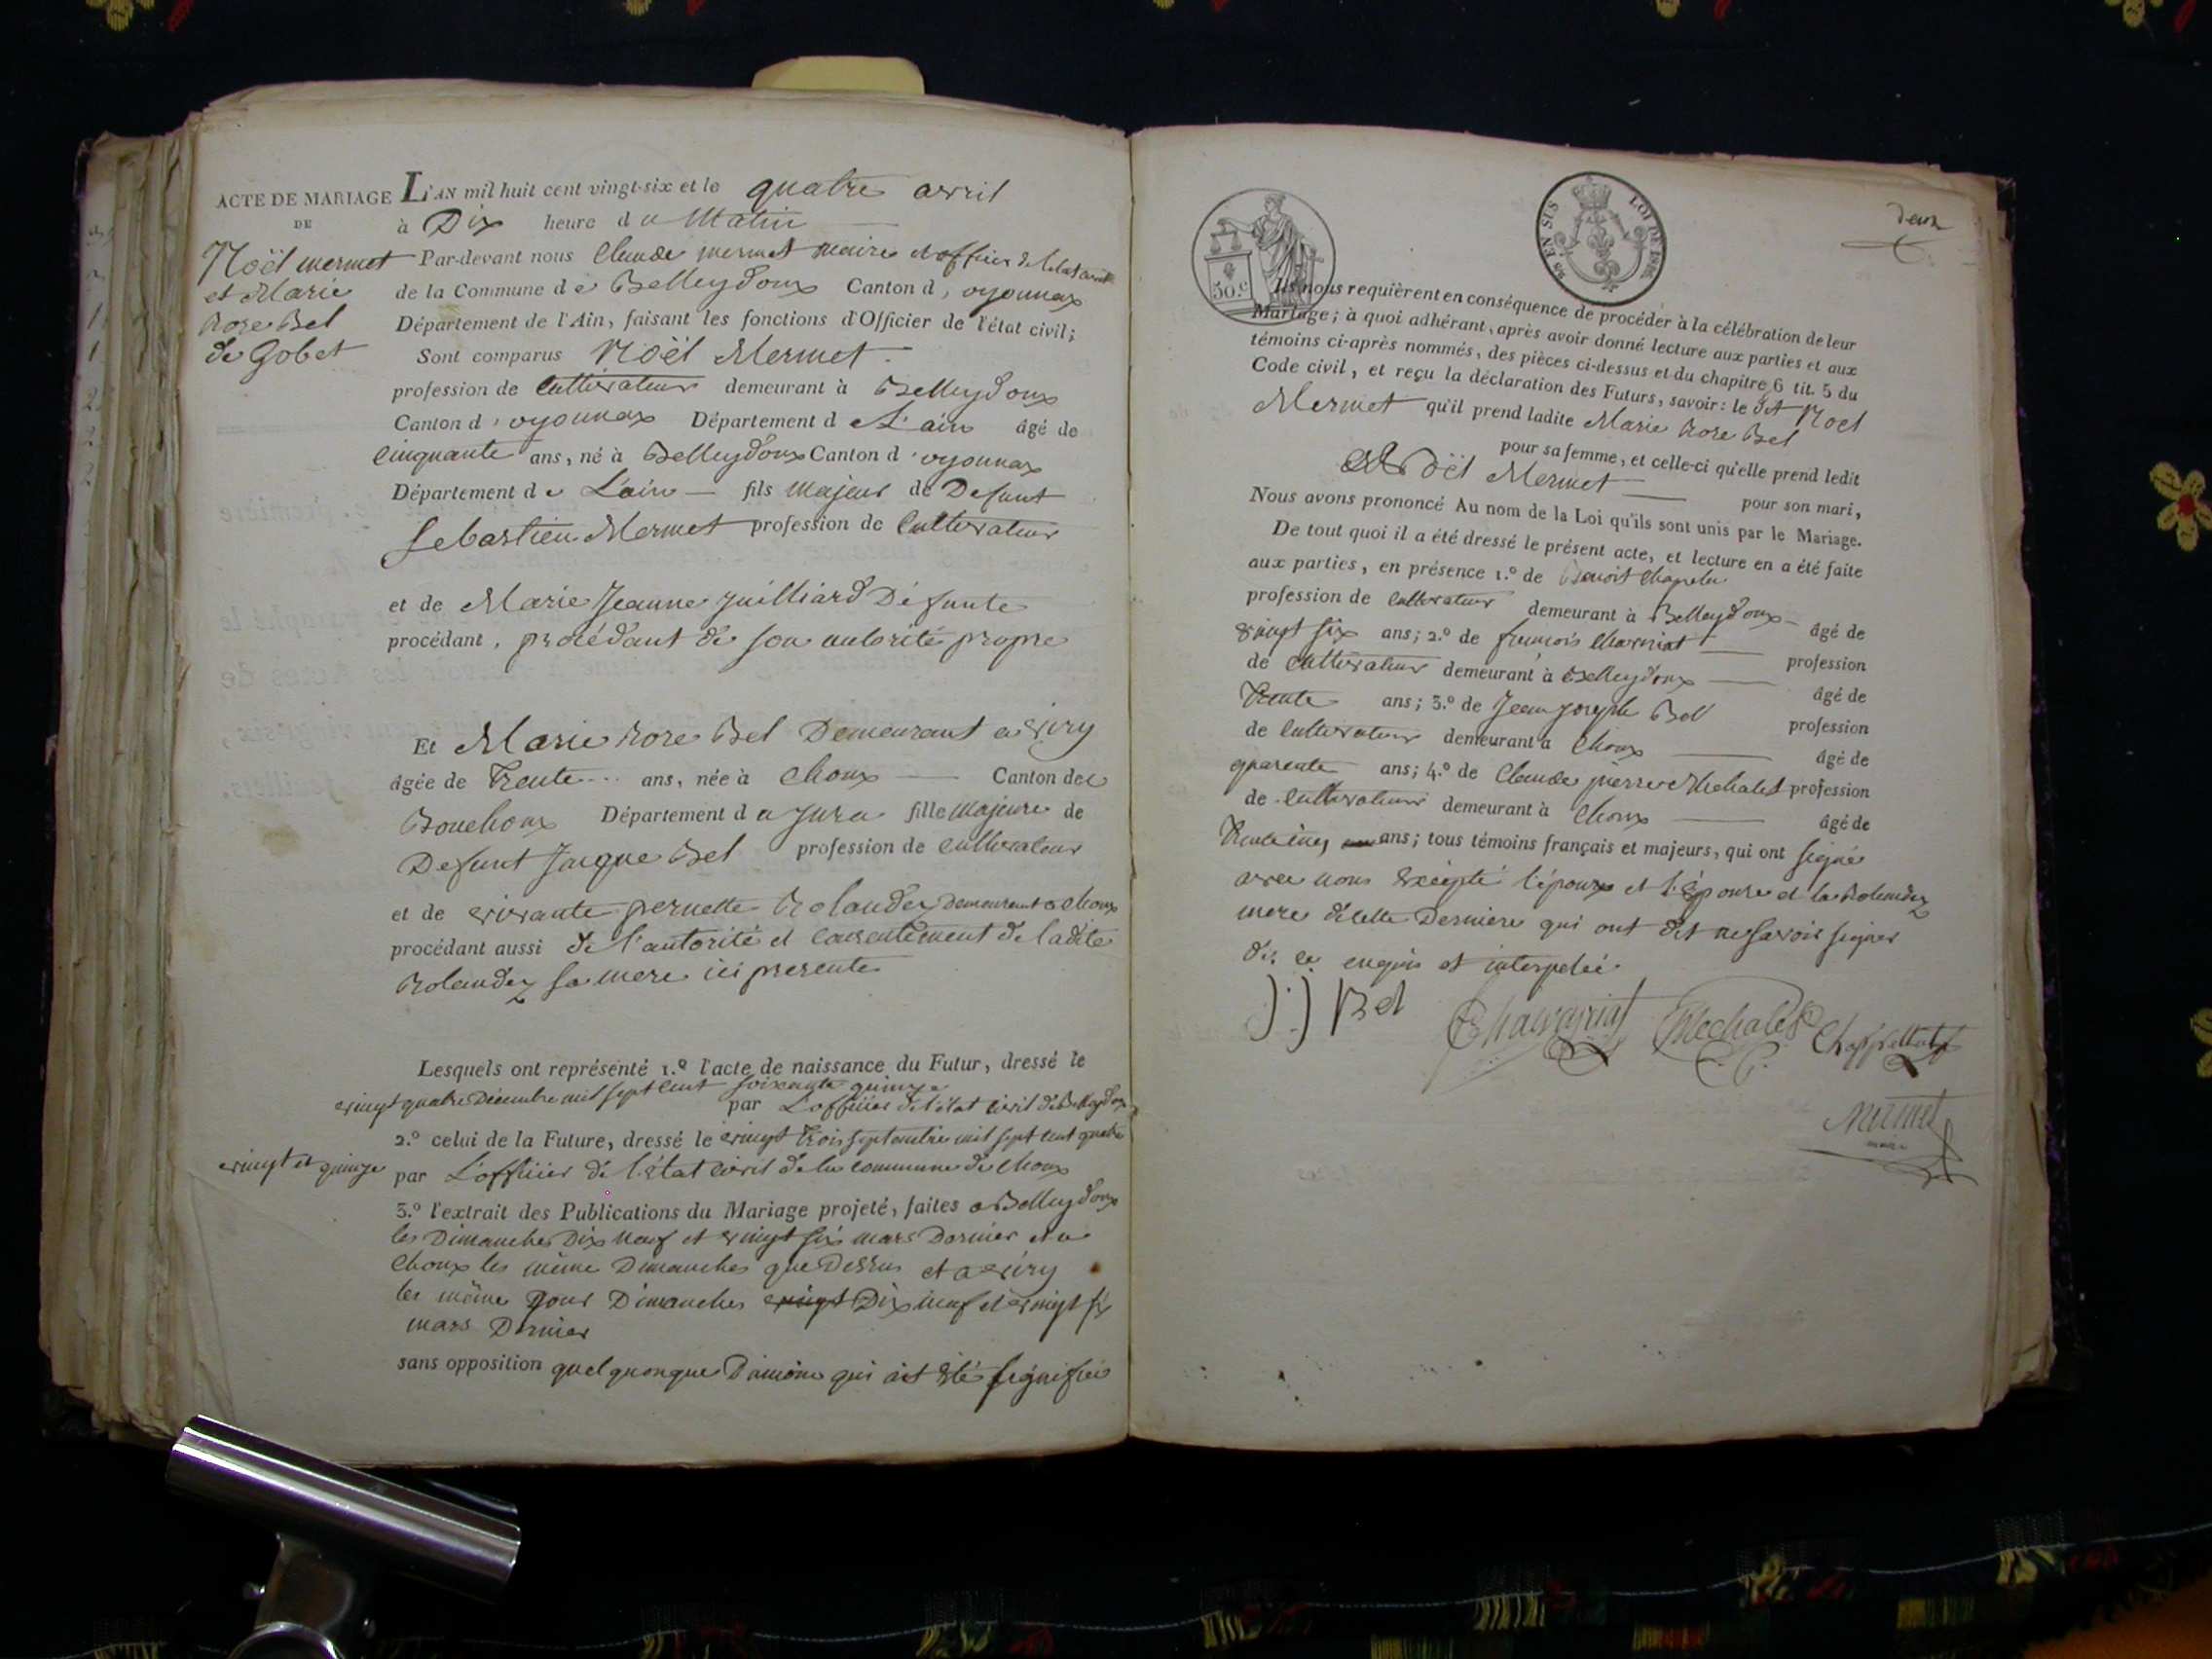 ACTE DE MARIAGE
DE
Noël mermet
et Marie
Rose Bel
de Gobet
L'AN mil huit cent vingt-six et le quatre avril
à Dix heure du Matin
Par-devant nous Claude mermet maire et officier de l'etat civil
de la Commune de Belleydoux Canton d'oyonnax
Département de l'Ain, faisant les fonctions d'Officier de l'état civil;
Sont comparus Noël Mermet
profession de Cultivateur demeurant à Belleydoux
Canton d'oyonnax Département de L'ain âgé de
Cinquante ans, né à Belleydoux Canton d'oyonnax
Département de L'ain fils Majeur de Defunt
Sebastien Mermet profession de Cultivateur
et de Marie Jeanne Juilliard Défunte
procédant, procédant de son autorité propre
Et Marie Rose Bel Demeurant a viry
âgée de Trente ans, née à Choux Canton de
Bouchoux Département du Jura fille Majeure de
Defunt Jacque Bel profession de cultivateur
et de vivante pernette Rolandez Demeurant a choux
procédant aussi de l'autorité et consentement de ladite
Rolandez sa mere ici presente
Lesquels ont représenté 1.º l'acte de naissance du Futur, dressé le
vingt quatre Décembre mil sept cent soixante quinze
par L'officier de l'état civil de Belleydoux
2.º celui de la Future, dressé le vingt trois septembre mil sept cent quatre
vingt et quinze par L'officier de l'état civil de la commune de choux
3.º l'extrait des Publications du Mariage projeté, faites a Belleydoux
les Dimanches Dix neuf et vingt six mars Dernier et a
Choux les même Dimanches que Dessus et a viry
les même Jour Dimanches vingt Dix neuf et vingt six
mars Dernier
sans opposition quelquonque Daucune qui ait été signifiée
50.c
LOI DE 1816
deux
Ils nous requièrent en conséquence de procéder à la célébration de leur
Mariage; à quoi adhérant, après avoir donné lecture aux parties et aux
témoins ci-après nommés, des pièces ci-dessus et du chapitre 6 tit. 5 du
Code civil, et reçu la déclaration des Futurs, savoir: le dit Noel
Mermet qu'il prend ladite Marie Rose Bel
pour sa femme, et celle-ci qu'elle prend ledit
Noël Mermet pour son mari,
Nous avons prononcé Au nom de la Loi qu'ils sont unis par le Mariage.
De tout quoi il a été dressé le présent acte, et lecture en a été faite
aux parties, en présence 1.º de Benoit
profession de cultivateur demeurant à Belleydoux âgé de
vingt six ans; 2.º de françois profession
de Cultivateur demeurant à Belleydoux âgé de
Trente ans; 3.º de Jean Joseph Bel profession
de Cultivateur demeurant à Choux âgé de
quarente ans; 4.º de Claude pierre Mechalet profession
de Cultivateur demeurant à Choux âgé de
Trente cinq ans; tous témoins français et majeurs, qui ont signé
avec nous Excepté l'époux et l'Epouse et la Rolandez
mere de cette Derniere qui ont dit ne savoir signer
de ce enquis et interpelée
J.J Bel
Mermet
maire